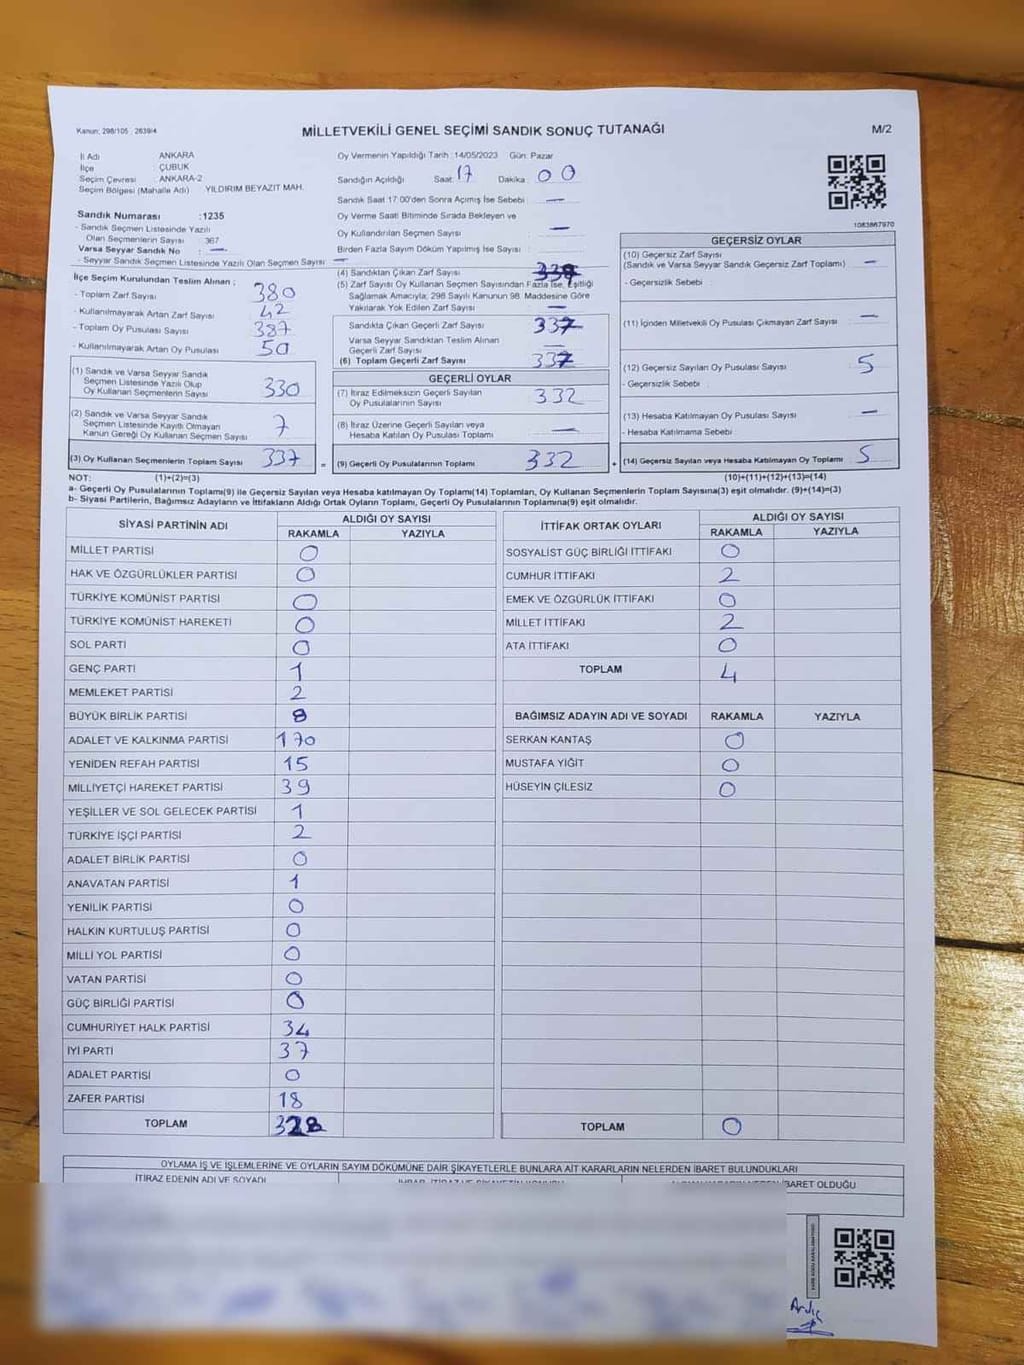 Kanun; 298/105 , 2839/4
MİLLETVEKİLİ GENEL SEÇİMİ SANDIK SONUÇ TUTANAĞI
M/2
İl Adı ANKARA
İlçe ÇUBUK
Seçim Çevresi : ANKARA-2
Seçim Bölgesi (Mahalle Adı) YILDIRIM BEYAZIT MAH.
Sandık Numarası :1235
- Sandık Seçmen Listesinde Yazılı
Olan Seçmenlerin Sayısı : 367
Varsa Seyyar Sandık No : —
- Seyyar Sandık Seçmen Listesinde Yazılı Olan Seçmen Sayısı —
Oy Vermenin Yapıldığı Tarih : 14/05/2023 Gün: Pazar
Sandığın Açıldığı Saat: 17 Dakika : 00
Sandık Saat 17.00'den Sonra Açımış İse Sebebi : —
Oy Verme Saati Bitiminde Sırada Bekleyen ve
Oy Kullandırılan Seçmen Sayısı —
Birden Fazla Sayım Döküm Yapılmış İse Sayısı : —
1083867970
İlçe Seçim Kurulundan Teslim Alınan ;
- Toplam Zarf Sayısı 380
- Kullanılmayarak Artan Zarf Sayısı 42
- Toplam Oy Pusulası Sayısı 387
- Kullanılmayarak Artan Oy Pusulası 50
(1) Sandık ve Varsa Seyyar Sandık
Seçmen Listesinde Yazılı Olup
Oy Kullanan Seçmenlerin Sayısı 330
(2) Sandık ve Varsa Seyyar Sandık
Seçmen Listesinde Kayıtlı Olmayan
Kanun Gereği Oy Kullanan Seçmen Sayısı 7
(3) Oy Kullanan Seçmenlerin Toplam Sayısı 337 =
(4) Sandıktan Çıkan Zarf Sayısı
(5) Zarf Sayısı Oy Kullanan Seçmen Sayısından Fazla İse, Eşitliği
Sağlamak Amacıyla; 298 Sayılı Kanunun 98. Maddesine Göre
Yakılarak Yok Edilen Zarf Sayısı —
Sandıkta Çıkan Geçerli Zarf Sayısı 337
Varsa Seyyar Sandıktan Teslim Alınan
Geçerli Zarf Sayısı —
(6) Toplam Geçerli Zarf Sayısı 337
GEÇERLİ OYLAR
(7) İtiraz Edilmeksizin Geçerli Sayılan
Oy Pusulalarının Sayısı 332
(8) İtiraz Üzerine Geçerli Sayılan veya
Hesaba Katılan Oy Pusulası Toplamı —
(9) Geçerli Oy Pusulalarının Toplamı 332 +
GEÇERSİZ OYLAR
(10) Geçersiz Zarf Sayısı
(Sandık ve Varsa Seyyar Sandık Geçersiz Zarf Toplamı) —
- Geçersizlik Sebebi :
(11) İçinden Milletvekili Oy Pusulası Çıkmayan Zarf Sayısı —
(12) Geçersiz Sayılan Oy Pusulası Sayısı 5
- Geçersizlik Sebebi :
(13) Hesaba Katılmayan Oy Pusulası Sayısı —
- Hesaba Katılmama Sebebi
(14) Geçersiz Sayılan veya Hesaba Katılmayan Oy Toplamı 5
NOT: (1)+(2)=(3) (10)+(11)+(12)+(13)=(14)
a- Geçerli Oy Pusulalarının Toplamı(9) ile Geçersiz Sayılan veya Hesaba katılmayan Oy Toplamı(14) Toplamları, Oy Kullanan Seçmenlerin Toplam Sayısına(3) eşit olmalıdır. (9)+(14)=(3)
b- Siyasi Partilerin, Bağımsız Adayların ve İttifakların Aldığı Ortak Oyların Toplamı, Geçerli Oy Pusulalarının Toplamına(9) eşit olmalıdır.
SİYASİ PARTİNİN ADI ALDIĞI OY SAYISI
RAKAMLA YAZIYLA
MİLLET PARTİSİ 0
HAK VE ÖZGÜRLÜKLER PARTİSİ 0
TÜRKİYE KOMÜNİST PARTİSİ 0
TÜRKİYE KOMÜNİST HAREKETİ 0
SOL PARTİ 0
GENÇ PARTİ 1
MEMLEKET PARTİSİ 2
BÜYÜK BİRLİK PARTİSİ 8
ADALET VE KALKINMA PARTİSİ 170
YENİDEN REFAH PARTİSİ 15
MİLLİYETÇİ HAREKET PARTİSİ 39
YEŞİLLER VE SOL GELECEK PARTİSİ 1
TÜRKİYE İŞÇİ PARTİSİ 2
ADALET BİRLİK PARTİSİ 0
ANAVATAN PARTİSİ 1
YENİLİK PARTİSİ 0
HALKIN KURTULUŞ PARTİSİ 0
MİLLİ YOL PARTİSİ 0
VATAN PARTİSİ 0
GÜÇ BİRLİĞİ PARTİSİ 0
CUMHURİYET HALK PARTİSİ 34
İYİ PARTİ 37
ADALET PARTİSİ 0
ZAFER PARTİSİ 18
TOPLAM 328
İTTİFAK ORTAK OYLARI ALDIĞI OY SAYISI
RAKAMLA YAZIYLA
SOSYALİST GÜÇ BİRLİĞİ İTTİFAKI 0
CUMHUR İTTİFAKI 2
EMEK VE ÖZGÜRLÜK İTTİFAKI 0
MİLLET İTTİFAKI 2
ATA İTTİFAKI 0
TOPLAM 4
BAĞIMSIZ ADAYIN ADI VE SOYADI RAKAMLA YAZIYLA
SERKAN KANTAŞ 0
MUSTAFA YİĞİT 0
HÜSEYİN ÇİLESİZ 0
TOPLAM 0
OYLAMA İŞ VE İŞLEMLERİNE VE OYLARIN SAYIM DÖKÜMÜNE DAİR ŞİKAYETLERLE BUNLARA AİT KARARLARIN NELERDEN İBARET BULUNDUKLARI
İTİRAZ EDENİN ADI VE SOYADI
İBARET OLDUĞU